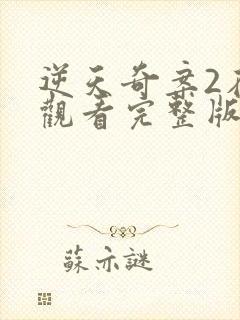 逆天奇案2
觀看完整版
蘇亦謎